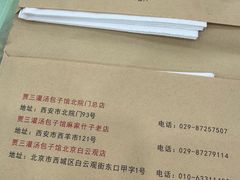 贾三灌汤包子馆北院门总店
地址：西安市北院门93号 电话：029-87257507
贾三灌汤包子馆麻家什子老店
地址：西安市西羊市121号 电话：029-87279114
贾三灌汤包子馆北京白云观店
地址：北京市西城区白云观街东口甲字1号 电话：010-6331